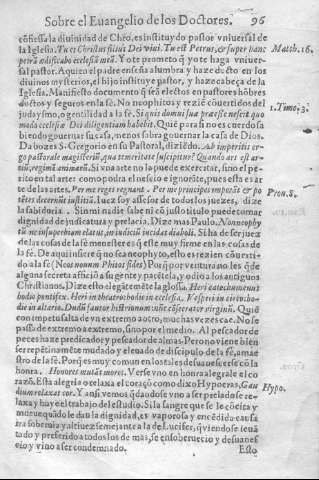 Sobre el Euangelio de los Doctores. 96
cõfiessa la diuinidad de Chro, es instituydo pastor vniuersal de
la Iglesia. Tu es Christus filius Dei viui. Tu est Petrus, & super hanc Matth. 16.
petrã edificabo ecclesiã meã. Y o te prometo q̃ yo te haga vniuer-
sal pastor. Aqui en el padre enseña alumbra y haze docto en los
diuinos mysterios, el hijo instituye pastor, y haze cabeça de la
Iglesia. Manifiesto documento q̃ seã electos en pastores hõbres
doctos y seguros en la fê. No neophitos y reziẽ cõuertidos del
judaysmo, o gentilidad a la fê. Si quis domui suæ præesse nescit quo 1. Timo. 3.
modo ecclesiæ Dei diligentiam habebit. Que para si no es cuerdo ni
biendo gouernar su casa, menos sabra gouernar la casa de Dios.
Da bozes S. Gregorio en su Pastoral, diziẽdo. Ab imperitis er-
go pastorale magisteriũ, qua temeritate suscipitur? Quando ars est ar-
tiũ, regimẽ animarũ. Si vna arte no la puede exercitar, sino el pe-
rito en tal arte como podra el necio e ignorãte, pues esta es ar
te de las artes. Per me reges regnant. Per me principes imperãt & po Prou. 8.
tẽtes decernũt iustitiã. Luez soy assessor de todos los juezes, dize
la sabiduria. Sin mi nadie sabe ni cõ justo titulo puede tomar
dignidad de judicatura y prelacia. Dize mas Paulo. Non neophy
tũ ne in superbiam elatus, in iudiciũ incidat diaboli. Si ha de ser juez
de las cosas de la fê menester es q̃ este muy firme en las cosas de
la fê. De aqui infiere q̃ no sea neophyto, esto es rezien cõuerti-
do a la fê (Nouatnum Phitos fides) Porq̃ por ventura no les q̃de
alguna secreta afficiõ a su gente y parẽtela, y odio a los antiguos
Christianos. Dize esto elegãtemẽte la glossa. Heri catechumenus
hodie pontifex. Heri in theatro: hodie in ecclesia. Vesperi in circo: ho-
die in altario. Dudũ fautor histrionum: nũc cõsecrator virginũ. Que si
con impetu salta de vn extremo a otro, muchas vezes cae. No se
passa de extremo a extremo, sino por el medio. Al pescador de
peces haze predicador y pescador de almas. Pero no viene bien
ser repẽtinamẽte mudado y eleuado de discipulo de la fê, a maes
tro de la fê. Porq̃ es muy comun en los tales desuanescerse cõ la
honra. Honores mutãt mores. Verse vno en honra alegrale el co
razõ. Esta alegria o relaxa el coraçõ como dixo Hypocras, Gau Hypo.
dium relaxat cor. Y ansi vemos q̃ dandose vno a ser perlado se re-
laxa y huye el trabajo del estudio. Si la sangre que se le
tra soberuia y altiuez semejante a la de Lucifer, viendose leuã
tado y preferido a todos los demas, se ensoberuecio y desuanes
cio y vino a ser condemnado. Esto